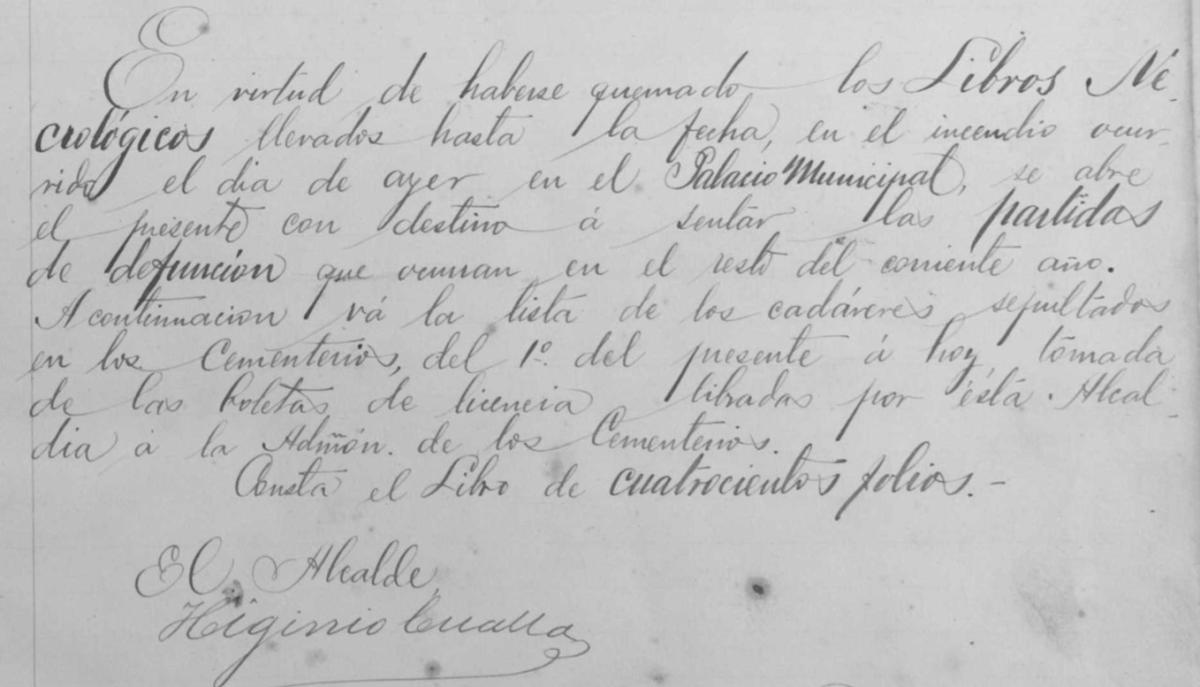 En virtud de haberse quemado los Libros Ne-
crológicos llevados hasta la fecha, en el incendio ocur-
rido el dia de ayer en el Palacio Municipal, se abre
el presente con destino á sentar las partidas
de defuncion que ocurran en el resto del corriente año.
A continuacion vá la lista de los cadáveres sepultados
en los Cementerios, del 1º. del presente á hoy, tomada
de las boletas de licencia libradas por ésta Alcal-
dia á la Admón. de los Cementerios.
Consta el Libro de cuatrocientos folios.-
El Alcalde,
Higinio Cualla